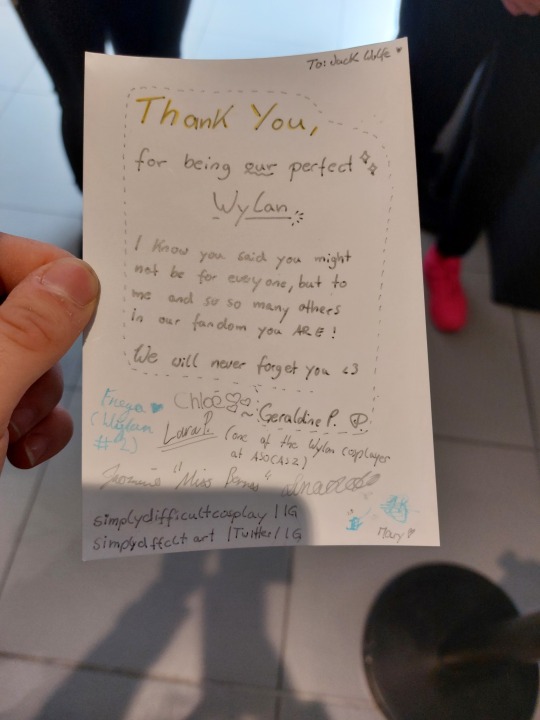 To: Jack Wolfe ♥
Thank You,
for being our perfect
Wylan
I know you said you might
not be for everyone, but to
me and so so many others
in our fandom you ARE!
We will never forget you <3
Freya ♥
(Wylan
#2)
Chloë
~ Geraldine P.
(one of the Wylan cosplayer
at ASOCAS2)
"Miss
simplydifficultcosplay | IG
simplydffclt art | Twitter / IG
Mary ♥